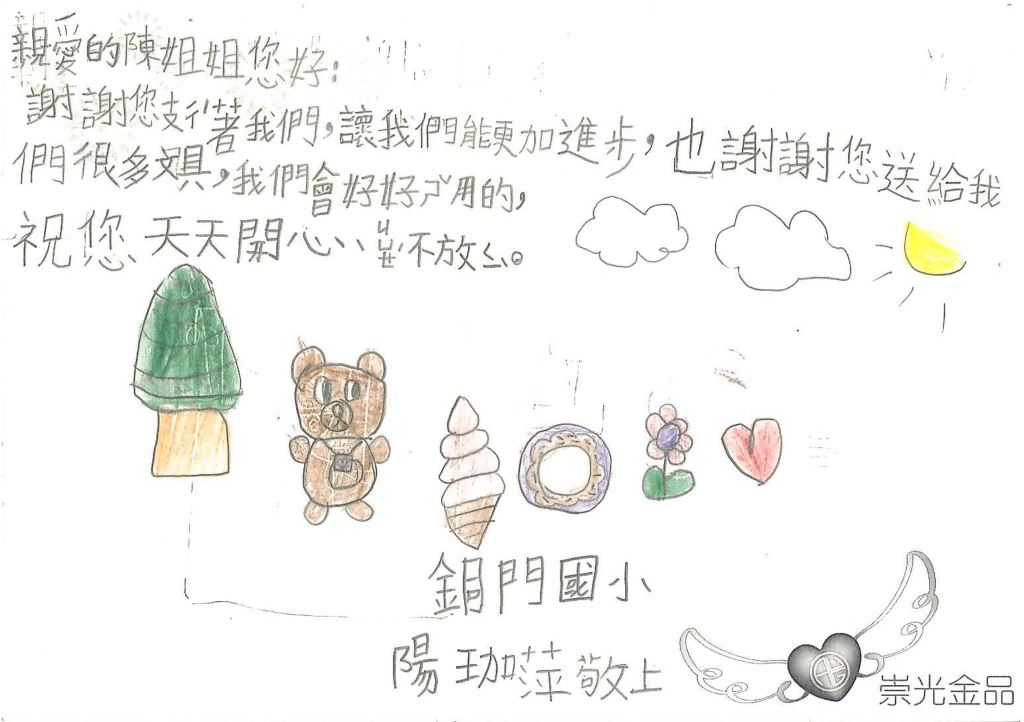 親愛的陳姐姐您好:
謝謝您支ㄔˊ著我們,讓我們能更加進步,也謝謝您送給我
們很多文具,我們會好好ㄕˇ用的,
祝您天天開心、ㄐㄧㄝ不放ㄙ。
銅門國小
陽珈萍敬上
崇光金品